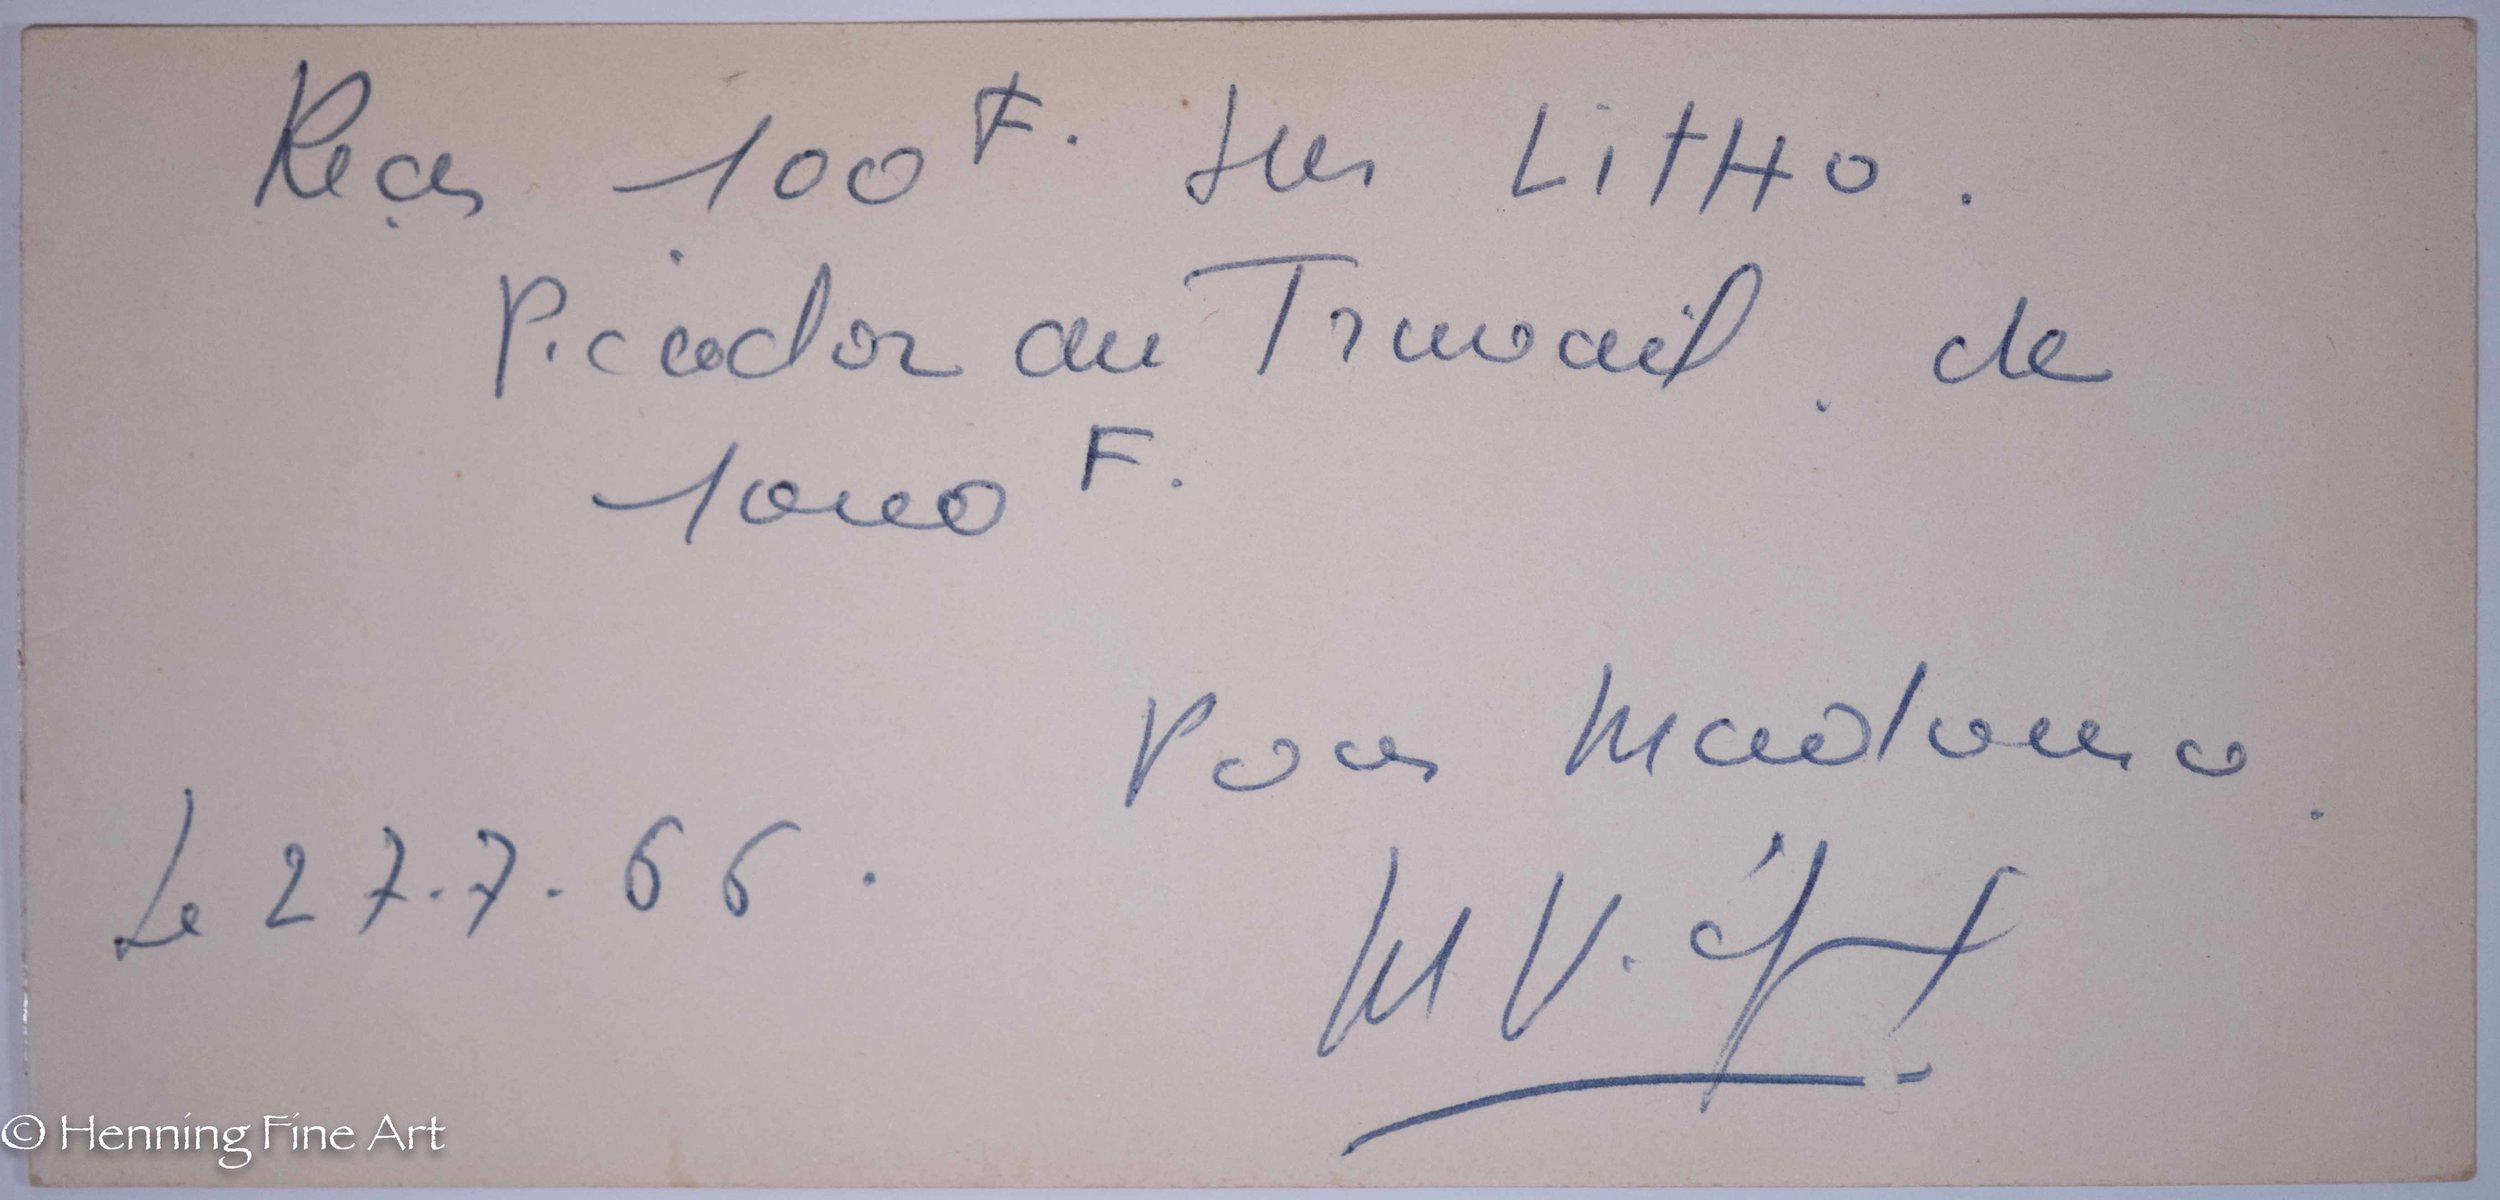 Reçu 100 F. sur LitHo.
Picador au Travail. de
1000 F.
Pour Madoura.
Le 27.7.66.
© Henning Fine Art